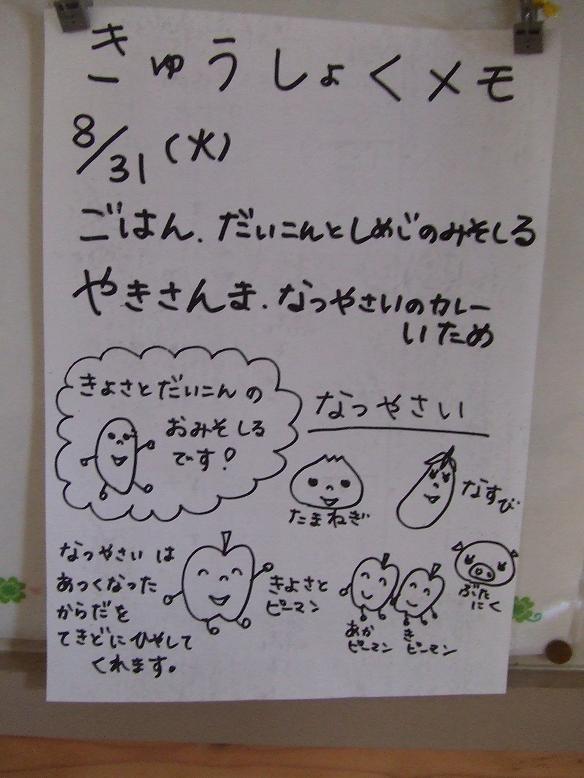 きゅうしょくメモ
8/31(火)
ごはん.だいこんとしめじのみそしる
やきさんま.なつやさいのカレー
いため
きよさとだいこんの
おみそしる
です!
なつやさい
たまねぎ
なすび
なつやさいは
あつくなった
からだを
てきどにひやして
くれます。
きよさと
ピーマン
あか
ピーマン
き
ピーマン
ぶた
にく